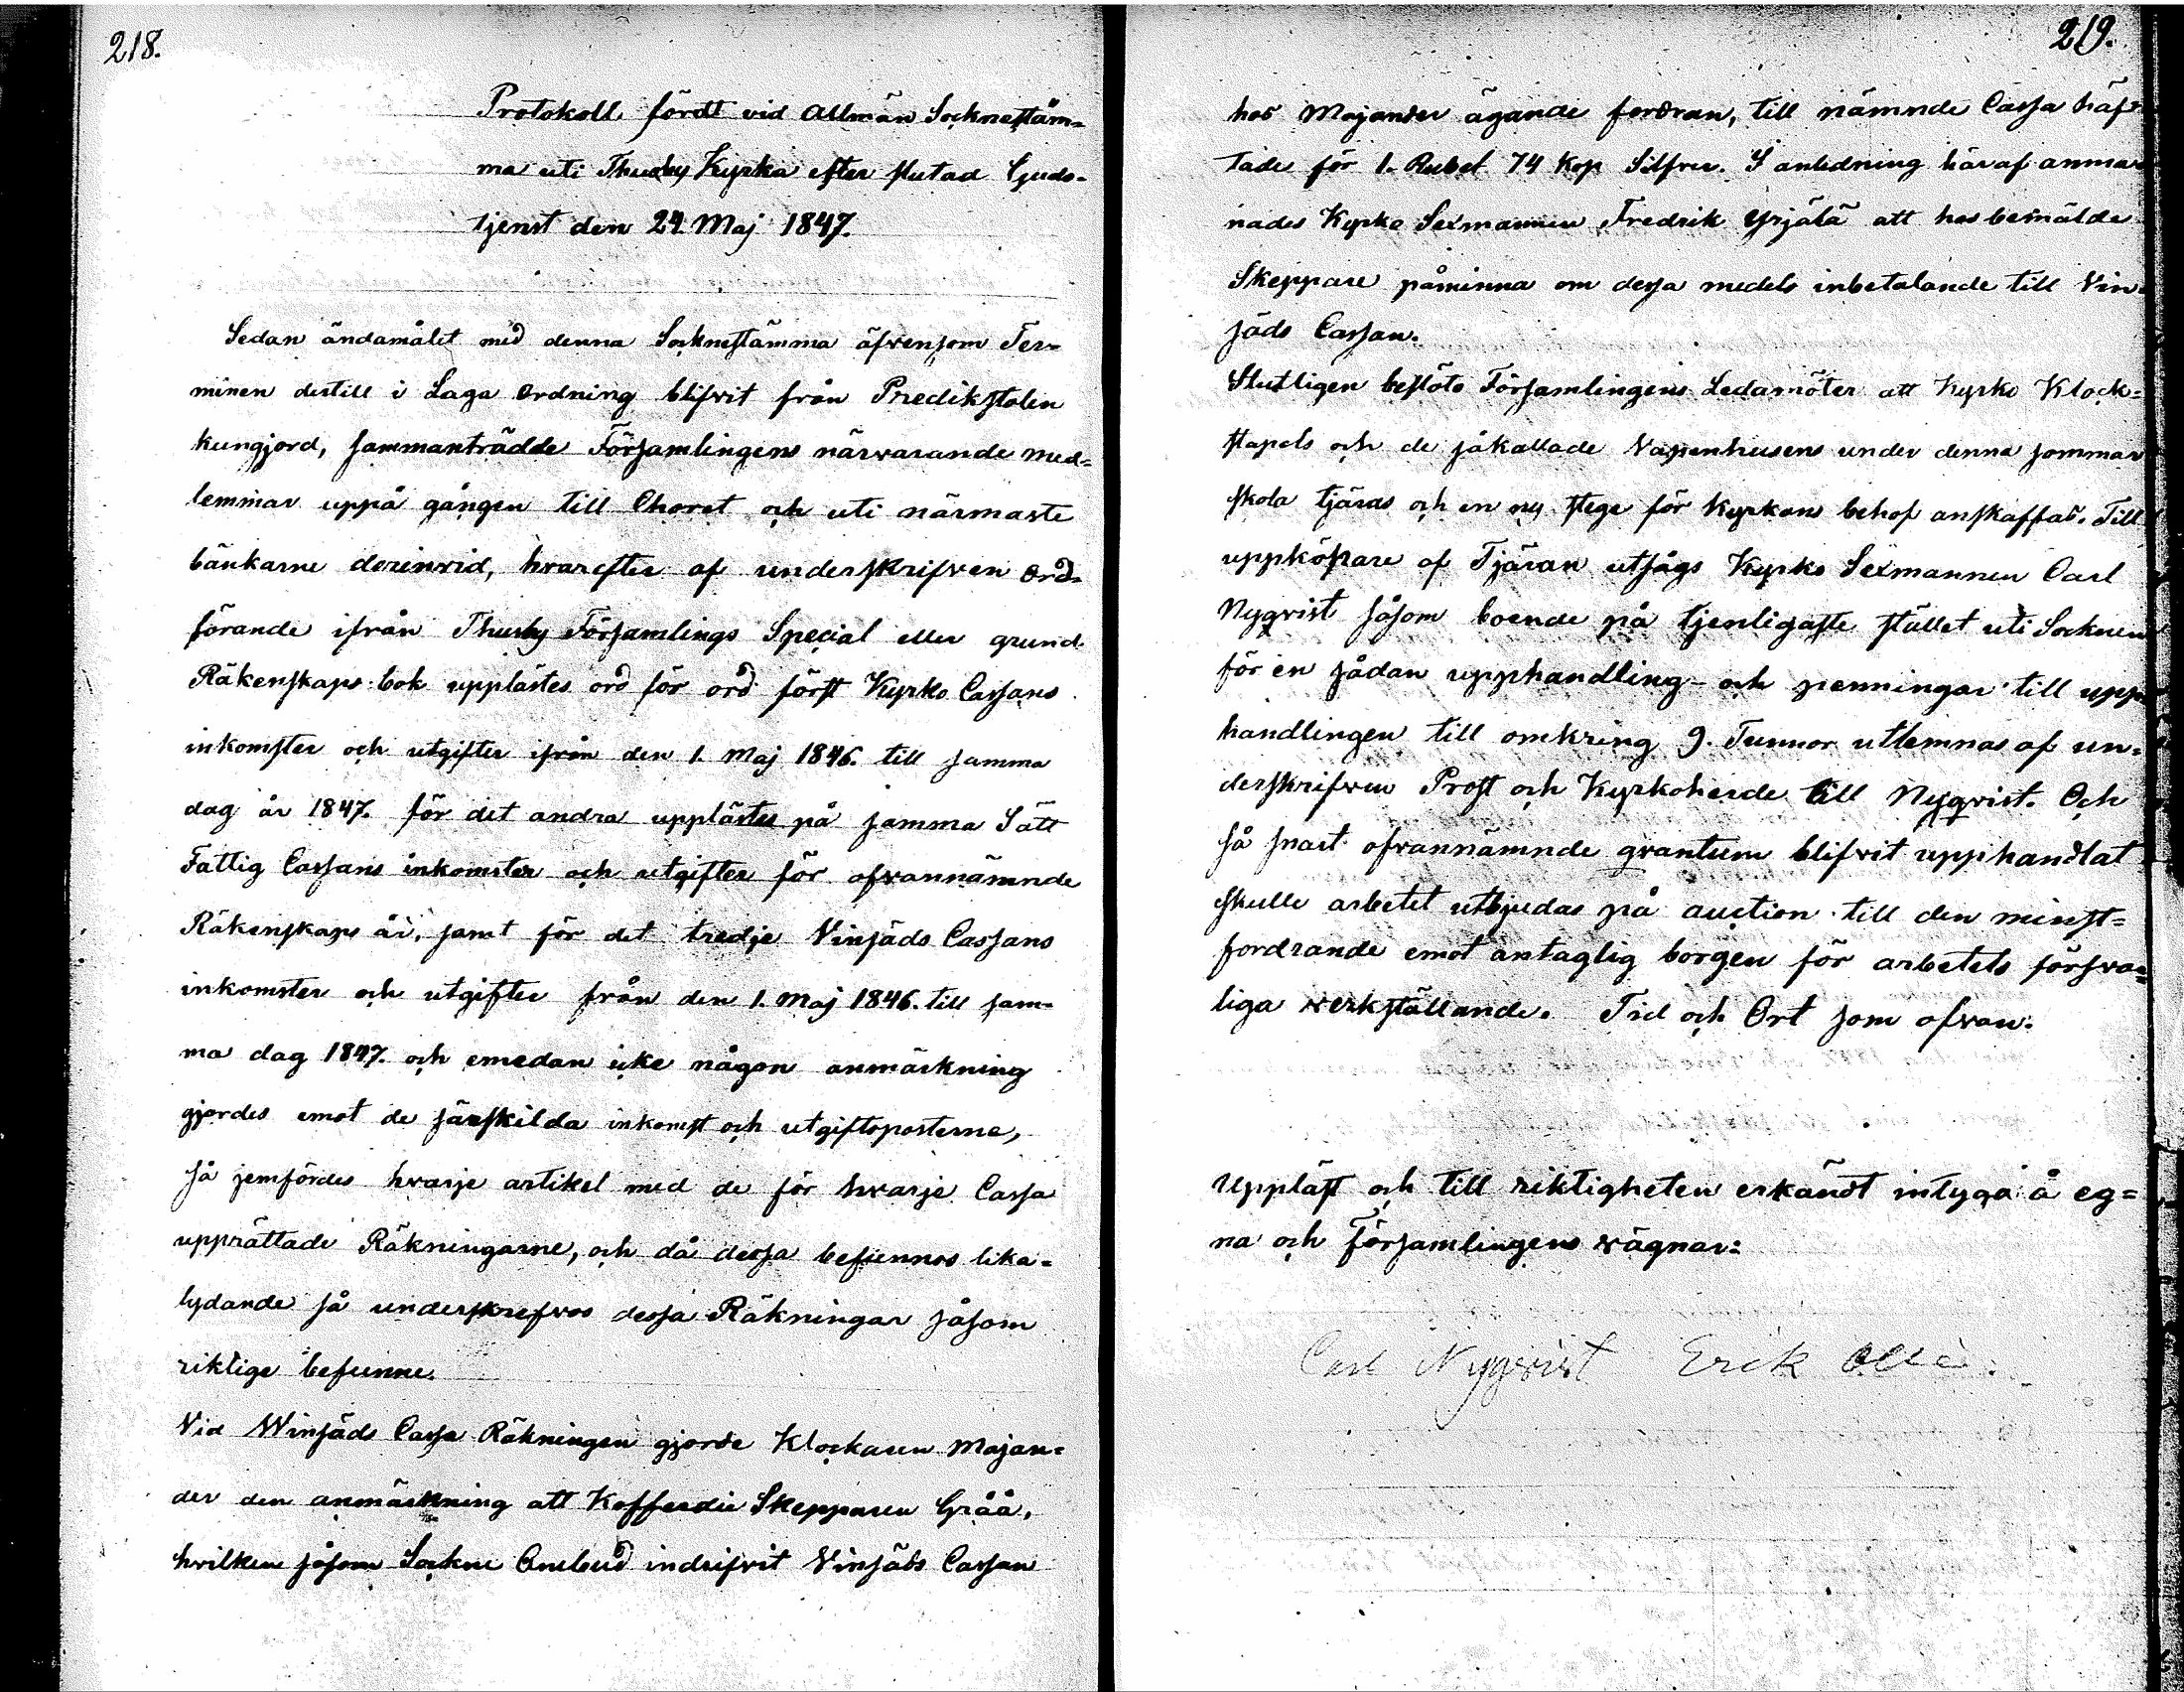 218.
Protokoll, fördt vid Allmän Sockneståm=
ma uti Thusby Kyrka efter slutad Guds=
tjenst den 24 Maj 1847.
Sedan ändamålet med denna Socknestämma äfvensom Ter=
minen dertill i Laga Ordning blifvit från Predikstolen
kungjord, sammanträdde Församlingens närvarande med=
lemmar uppå gången till Choret och uti närmaste
bänkarne derinvid, hvarefter af underskrifven Ord=
förande ifrån Thusby Församlings Special eller grund
Räkenskaps-bok upplästes ord för ord först Kyrko Cassans
inkomster och utgifter ifrån den 1. Maj 1846. till samma
dag år 1847. för det andra upplästes på samma Sätt
Fattig Cassans inkomster och utgifter för ofvannämnde
Räkenskaps år, samt för det tredje Vinsäds Cassans
inkomster och utgifter från den 1. Maj 1846. till sam=
ma dag 1847. och emedan icke någon anmärkning
gjordes emot de särskilda inkomst och utgiftsposterne,
så jemfördes hvarje artikel med de för hvarje Cassa
upprättade Räkningarne, och då dessa befunnos lika=
lydande så underskrefvos dessa Räkningar såsom
riktige befunne.
Vid Winsäds Cassa Räkningen gjorde Klockaren Majan=
der den anmärkning att Kofferdie Skepparen Gråå,
hvilken såsom Sockne Ombud indrifvit Vinsäds Cassan
219.
hos Majander ägande fordran, till nämnde Cassa häf=
tade för 1. Rubel 74 Kop Silfver. I anledning häraf anmar
nades Kyrko Sexmannen Fredrik Yrjälä att hos bemälde
Skeppare påminna om dessa medels inbetalande till Vin=
säds Cassan.
Slutligen beslöto Församlingens Ledamöter att Kyrko Klock=
stapels och de såkallade Vapenhusens under denna sommar
skola tjäras och en ny stege för Kyrkans behof anskaffas. Till
uppköpare af Tjäran utsågs Kyrko Sexmannen Carl
Nyqvist såsom boende på tjenligaste stället uti Socknen
för en sådan upphandling - och penningar till upp
handlingen till omkring 9. Tunnor utlemnas af un=
derskrifven Prost och Kyrkoherde till Nyqvist. Och
så snart ofvannämnde qvantum blifvit upphandlat
skulle arbetet utbjudas på auction till den minst=
fordrande emot antaglig borgen för arbetets försva=
liga verkställande. Tid och Ort som ofvan.
Uppläst och till riktigheten erkändt intyga å eg=
na och Församlingens vägnar:
Carl Nyqvist Erik